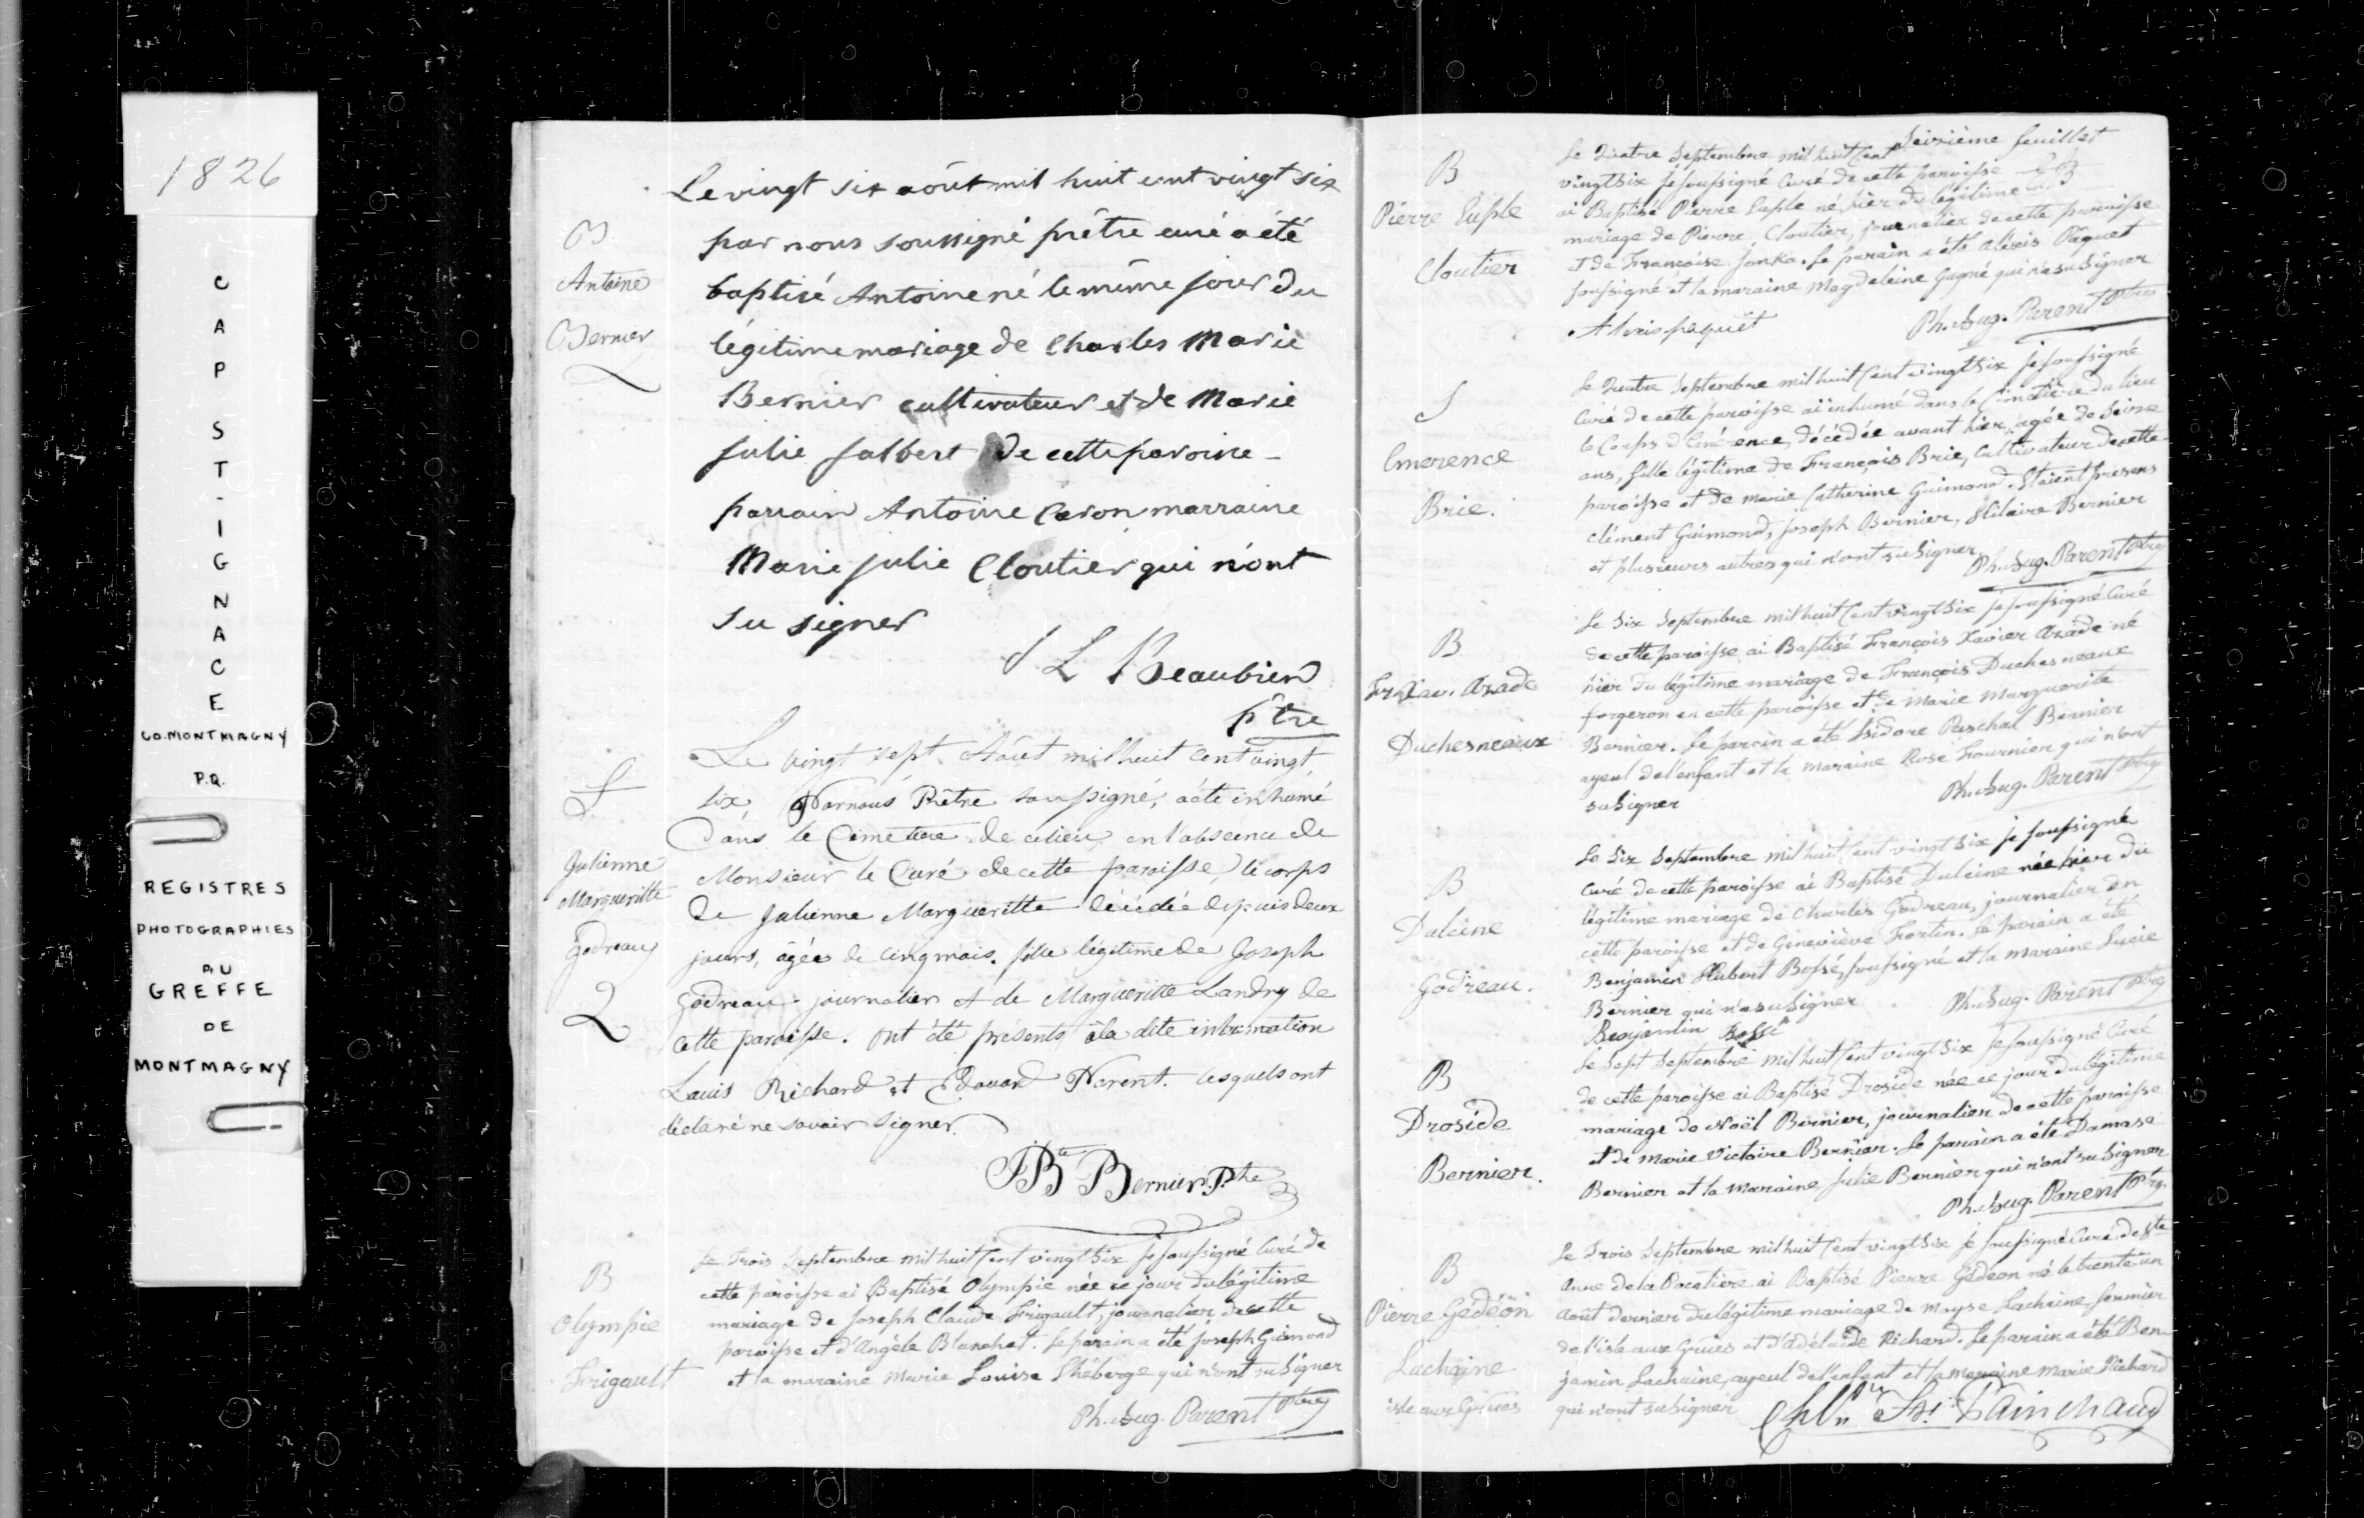 1826
CAP ST-IGNACE
CO. MONTMAGNY
P.Q.
REGISTRES
PHOTOGRAPHIES
AU
GREFFE
DE
MONTMAGNY
B
Antoine
Bernier
Le vingt six août mil huit cent vingt six
par nous soussigné prêtre curé a été
baptisé Antoine né le même jour du
légitime mariage de Charles Marie
Bernier cultivateur et de Marie
julie jalbert de cette paroisse –
parrain Antoine Caron marraine
Marie julie Cloutier qui n'ont
su signer
J L Beaubien
ptre
S
Julienne
Margueritte
Godreau
Le vingt sept Aôut mil huit cent vingt
six, Par nous Prêtre soussigné, a été inhumé
Dans le Cimetiere de ce lieu en l'absence de
Monsieur le Curé de cette paroisse, le corps
de Julienne Margueritte décédée depuis deux
jours, âgée de cinq mois, fille légitime de Joseph
Godreau journalier et de Margueritte Landry de
cette paroisse. Ont été présents à la dite inhumation
Louis Richard et Edouard Parent. lesquels ont
déclaré ne savoir signer.
JBte Bernier Ptre
B
Olympie
Frigault
Le Trois Septembre mil huit Cent vingt Six je soussigné Curé de
cette paroisse ai Baptisé Olympie née ce jour du légitime
mariage de Joseph Claude Frigault, journalier de cette
paroisse et d'Angèle Blanchet. Le parain a été Joseph Gimond
et la maraine Marie Louise Théberge qui n'ont su Signer
Ph. Aug. Parent Ptre
Seizième feuillet
B
Pierre Euple
Cloutier
Le Quatre Septembre mil huit Cent
vingt Six je soussigné Curé de cette paroisse
ai Baptisé Pierre Euple né hier du légitime
mariage de Pierre Cloutier, journalier de cette paroisse
et de Françoise Jonka. Le parain a été Alexis Pâquet
soussigné et la maraine Magdeleine Gagné qui n'a su Signer
Alexis paquêt
Ph. Aug. Parent Ptre
S
Emerence
Brie.
Le Quatre Septembre mil huit Cent vingt Six je soussigné
Curé de cette paroisse ai inhumé dans le Cimetière du lieu
le Corps d'Emérence, décédée avant hier, agée de Seize
ans, fille légitime de François Brie, Cultivateur de cette
paroisse et de Marie Catherine Guimond. Etaient présens
Clément Guimond, Joseph Bernier, Hilaire Bernier
et plusieurs autres qui n'ont su Signer
Ph. Aug. Parent Ptre
B
Fr. Xav. Azade
Duchesneaux
Le Six Septembre mil huit Cent vingt Six je soussigné Curé
de cette paroisse ai Baptisé François Xavier Azade né
hier du légitime mariage de François Duchesneaux
forgeron en cette paroisse et de Marie Marguerite
Bernier. Le parain a été Isidore Paschal Bernier
ayeul de l'enfant et la maraine Rose Fournier qui n'ont
su Signer
Ph. Aug. Parent Ptre
B
Dulcine
Godreau.
Le Six Septembre mil huit Cent vingt Six je soussigné
Curé de cette paroisse ai Baptisé Dulcine née hier du
légitime mariage de Charles Godreau, journalier en
cette paroisse et de Geneviève Fortin. Le parain a été
Benjamin Hubert Bossé, soussigné et la maraine Lucie
Bernier qui n'a su Signer
Benjamin Bossé
Ph. Aug. Parent Ptre
B
Droside
Bernier.
Le Sept Septembre mil huit Cent vingt Six je soussigné Curé
de cette paroisse ai Baptisé Droside née ce jour du légitime
mariage de Noël Bernier, journalier de cette paroisse
et de Marie Victoire Bernier. Le parain a été Damase
Bernier et la Maraine Julie Bernier qui n'ont su Signer
Ph. Aug. Parent Ptre
B
Pierre Gédéon
Lachaine
isle aux Grues
Le Trois Septembre mil huit Cent vingt Six je soussigné Curé de Ste
Anne de la Pocatière ai Baptisé Pierre Gédeon né le trente un
Août dernier du légitime mariage de Moyse Lachaine, fermier
de l'isle aux Grues et d'Adélaïde Richard. Le parain a été Ben-
jamin Lachaine, ayeul de l'enfant et la maraine Marie Richard
qui n'ont su Signer
Chs Fs. Painchaud